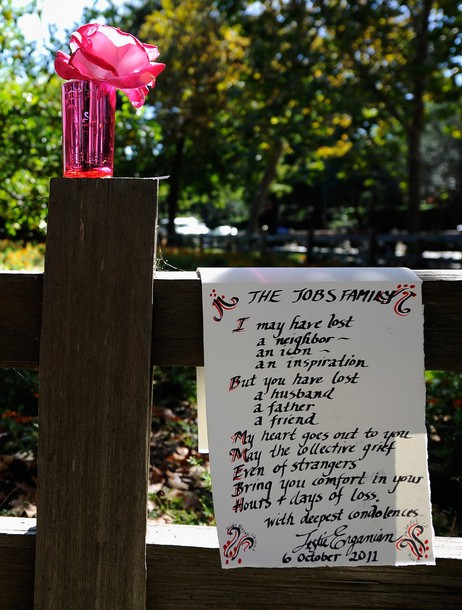 THE JOBS FAMILY
I may have lost
a neighbor ~
an icon ~
an inspiration
But you have lost
a husband
a father
a friend
My heart goes out to you
May the collective grief
Even of strangers
Bring you comfort in your
Hours & days of loss.
with deepest condolences.
Leslie Erganian
6 October 2011